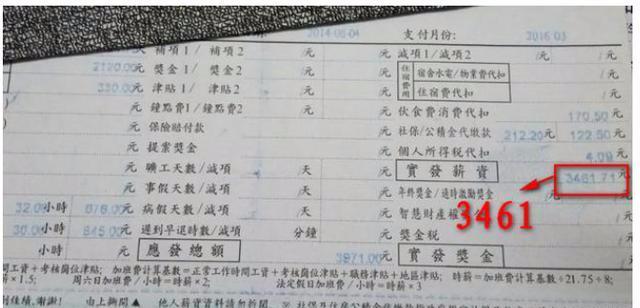 2014-08-04 支付月份: 2016 03
補項1/ 補項2 /元 元 減項1/減項2 /元 /元
2120.00元 獎金1/ 獎金2 /元 元 住宿費用 宿舍水電/物業費代扣 /元
330.00元 津貼1/ 津貼2 /元 元 住宿費代扣 /元
元 鐘點費1/鐘點費2 /元 元 伙食費消費代扣 170.50元
元 保險賠付款 元 社保/公積金代繳款 212.20元 122.50元
元 提案獎金 元 個人所得税代扣 4.09元
元 曠工天數/減項 天 元 實發薪資 3461.71元
元 事假天數/減項 天 元 年終獎金/適時激勵獎金 /元
32.00小時 676.00元 病假天數/減項 天 元 智慧財產權 3461
30.00小時 845.00元 遲到早退時數/減項 分鐘 元 獎金税
小時 元 應發總額 3971.00元 實發獎金
間工資+考核崗位津貼; 加班費計算基數=正常工作時間工資+考核崗位津貼+職務津貼+地區津貼; 時薪=加班費計算基數÷21.75÷8;
薪×1.5; 周六日加班費/小時=時薪×2; 法定假日加班費/小時=時薪×3
利佳績,谢谢! 由上撕開▲ 他人薪資資料請勿拆閱